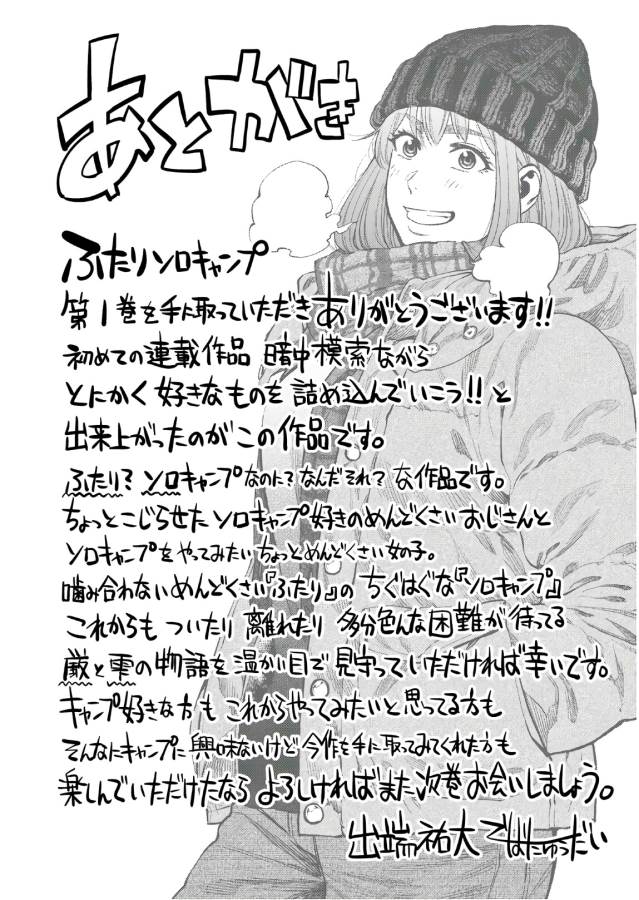 あとがき
ふたりソロキャンプ
第1巻を手に取っていただきありがとうございます!!
初めての連載作品 暗中模索ながら
とにかく好きなものを詰め込んでいこう!!と
出来上がったのがこの作品です。
ふたり?ソロキャンプなのに?なんだそれ?な作品です。
ちょっとこじらせたソロキャンプ好きのめんどくさいおじさんと
ソロキャンプをやってみたいちょっとめんどくさい女の子。
噛み合わないめんどくさい『ふたり』のちぐはぐな『ソロキャンプ』
これからもついたり離れたり多分色んな困難が待ってる
厳と雫の物語を温かい目で見守っていただければ幸いです。
キャンプ好きな方もこれからやってみたいと思ってる方も
そんなにキャンプに興味ないけど今作を手に取ってみてくれた方も
楽しんでいただけたなら よろしければまた次巻お会いしましょう。
出端祐大 ではたゆうだい